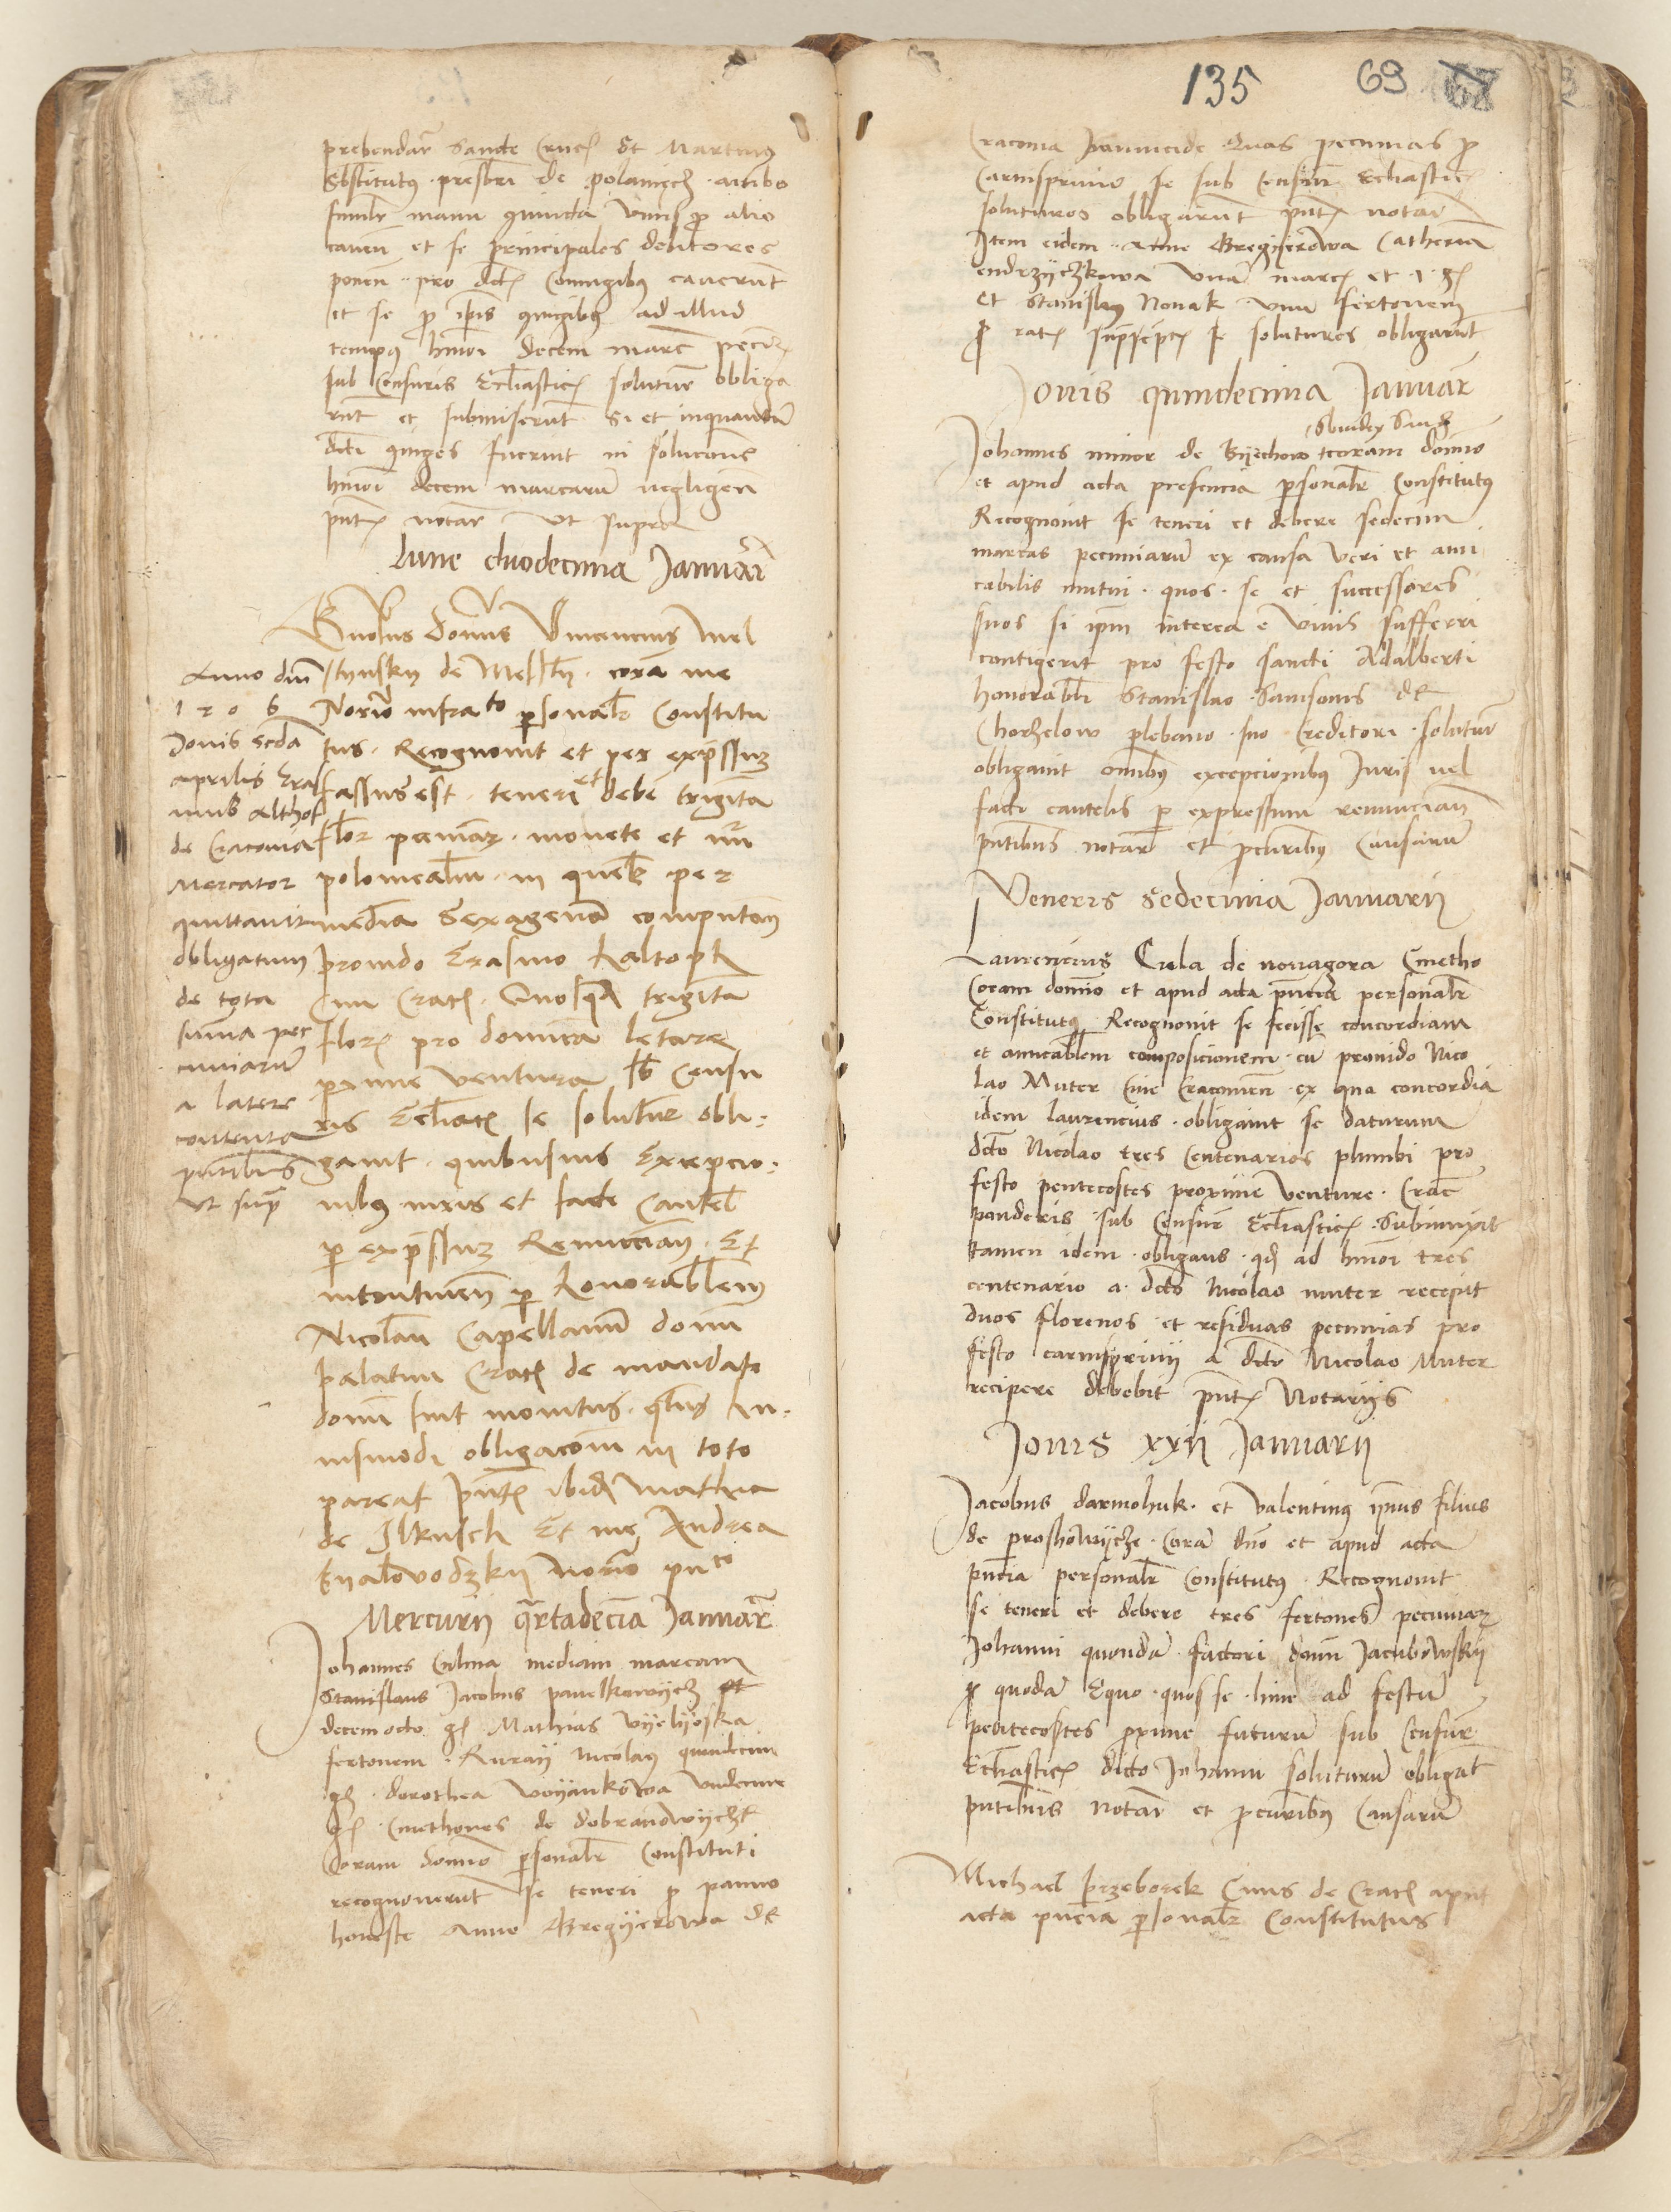 prebendar Sancte Crucs et Martinus
Sbstitutus presbri de polanyecz ambo
simili manu coniuncta unus pro alio
caven et se principales debitores
ponen pro dcts Coniugibus caverunt
et se pro ipsis coniugibus ad illud
tempus hmoi decem marc pecuniar
sub Censuris Ecclasticis solutur obliga
runt et submiserunt Si et inquantum
dicti coniuges fuerint in solucone
hmoi decem marcaru negligen
pntes notar ut supra
Lune duodecima Januar
Gnosus Domnus Vincencius Mel
stynsky de Melstin cora me
Norio infrato personalr Constitu
tus Recognovit et per expressuz
fassus est teneri et debe triginta
flor pecuniar monete et nui
polonicalium in quemlibet per
mediam Sexagenam computan
provido Erasmo Kaltoph
Civi Cracs Quosquidem triginta
flors pro dominica letare
proxime ventura sb Censu
ris Ecclasts se solutur obli
gavit quibusvis Excepcio
nibus iuris et facte Cautel
per expressuz Renuncian Et
intontinen per honorablem
Nicolau Capellanum domi
palatini Cracs de mandato
domi fuit monitus quatenus hu
iusmodi obligacom in toto
pareat pntes ibidem Mathia
de Ilkusch Et me Andrea
Kyalowodzky Norio pnto
Anno dni
1506
Jovis Scda
aprilis Eras
mus Althof
de Cracovia
Mercator
quittavit
obligatum
de tota
summa pec
cuniarum
a latere
contenta
pntibus
ut supra
Mercurii quartadecia Januar
Johannes Culma mediam marcam
Stanislaus Jacobus pavelkowycz et
decemocto gs Mathias Vyelyoska
fertonem Kuray Nicolaus quindecim
gs dorothea Woyankowa Undecim
gs Cmethones de dobranowycze
Coram domino personalr Constituti
recognoverunt se teneri pro panno
honeste Anne Gregyerowa de
135 69
Cracovia pannicide Quas pecunias pro
Carnisprivio se sub Censuris Ecclastics
soluturos obligarunt pntes notar
Item eidem Anne Gregyerowa Catherina
endrzyczkowa Una marcs et 1 gs
Et Stanislaus Novak unu fertonem
pro rats suprasceptis se soluturos obligarunt
Jovis quindecima Januar
Johannes minor de Byechow coram domino
et apud acta presencia personalr Constitutus
Recognovit se teneri et debere sedecim
marcas pecuniarum ex causa veri et ami
cabilis mutui quos se et successores
suos si ipm interea e vivis sufferri
contigerit pro festo sancti Adalberti
honorabli Stanislao Samsonis de
Chorzelow plebano suo Creditori solutur
obligavit omnibus excepcionibus Juris vel
facti cautelis per expressum renuncian
pntibus notar et procuribus Causarum
Veneris Sedecima Januarii
Laurencius Cula de novagora Cmetho
Coram domino et apud acta pncia personalr
Constitutus Recognovit se fecisse concordiam
et amicablem composicionem cu provido Nico
lao Muter Cive Cracovien ex qua concordia
idem laurencius obligavit se daturum
dcto Nicolao tres Centenarios plumbi pro
festo pentecostes proxime venture Crac
ponderis sub Censur Ecclastics Subiunxit
tamen idem obligans quod ad hmoi tres
centenario a dcto Nicolao muter recepit
duos florenos et residuas pecunias pro
festo carnisprivii a dcto Nicolao Muter
recipere debebit pntes Notariis
Jovis xxii Januarii
Jacobus darmohuk et Valentinus ipsius filius
de proshowycze Cora dno et apud acta
pncia personalr Constitutus Recognovit
se teneri et debere tres fertones pecuniar
Johanni quondam factori domi Jacubowsky
pro quodam Equo quos se hinc ad festum
pentecostes proxime futurum sub Censur
Ecclastics dicto Johanni soluturum obligat
pntibus Notar et procuribus Causarum
Michael przeborek Civis de Cracs apud
acta pncia personalr Constitutus